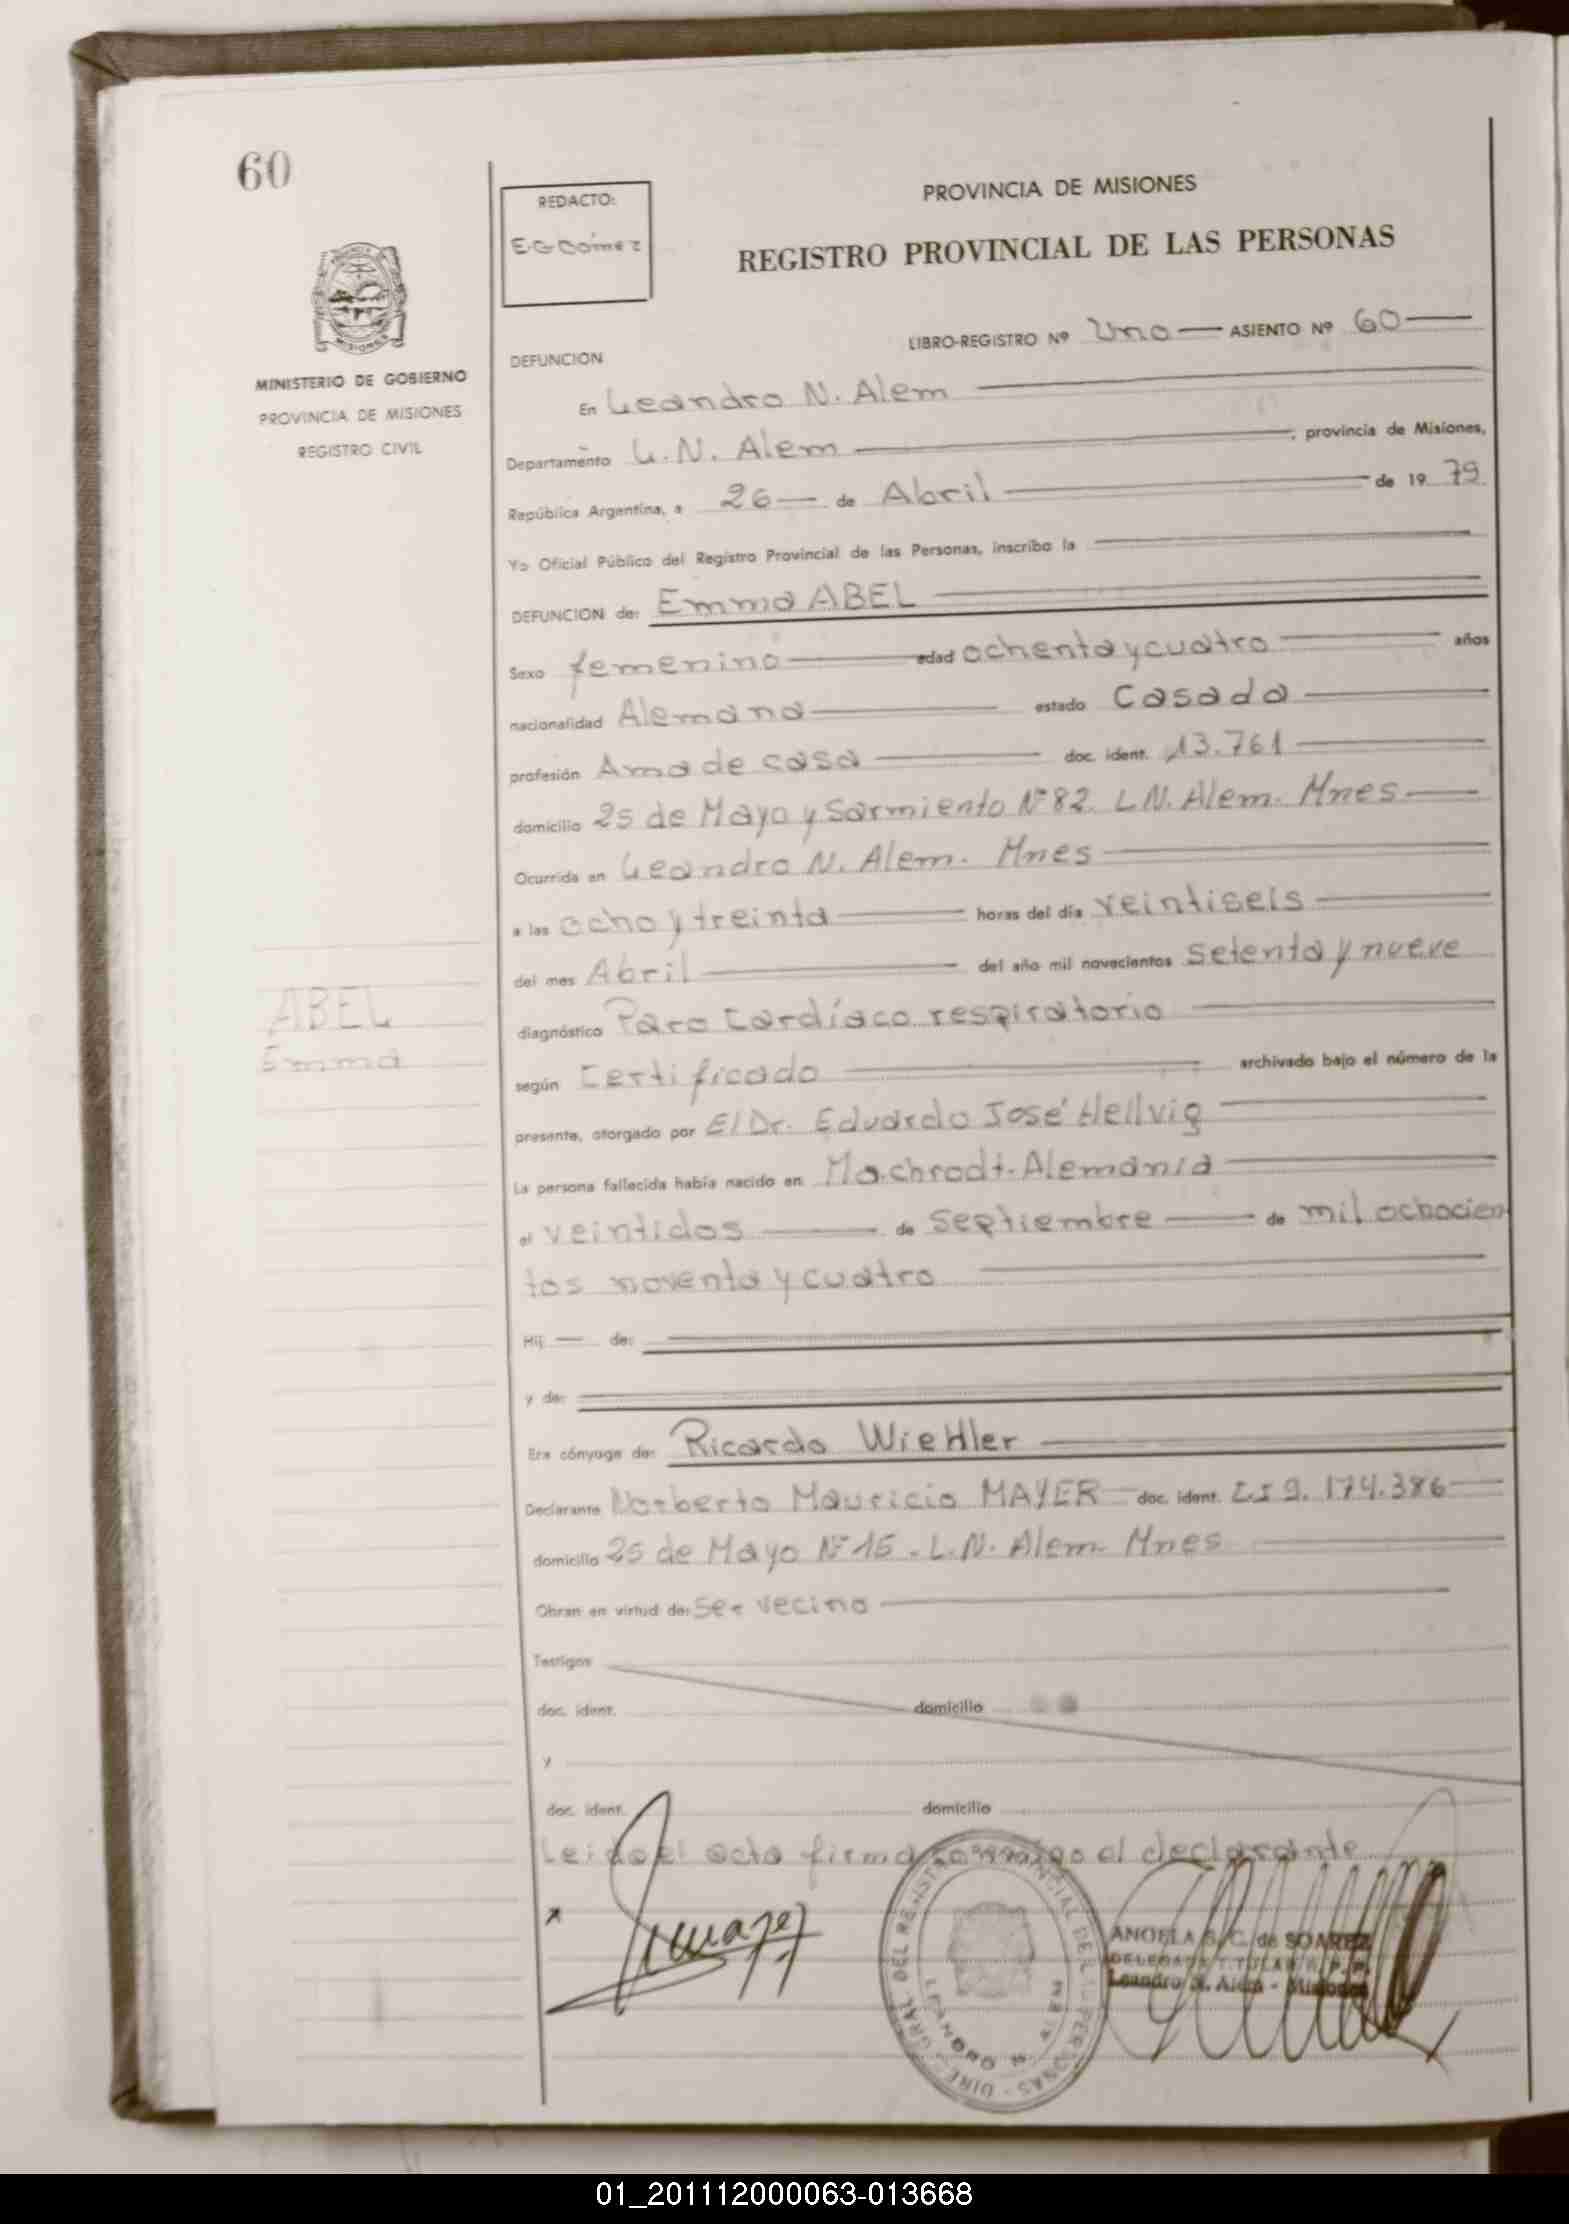 60
REDACTO:
E.G Gómez
PROVINCIA DE MISIONES
REGISTRO PROVINCIAL DE LAS PERSONAS
MISIONES
MINISTERIO DE GOBIERNO
PROVINCIA DE MISIONES
REGISTRO CIVIL
LIBRO-REGISTRO Nº Uno ASIENTO Nº 60
DEFUNCION
En Leandro N. Alem
Departamento L.N. Alem, provincia de Misiones,
República Argentina, a 26 de Abril de 19 79
Yo Oficial Público del Registro Provincial de las Personas, inscribo la
DEFUNCION de: Emma ABEL
Sexo femenino edad ochenta y cuatro años
nacionalidad Alemana estado Casada
profesión Ama de casa doc. ident. 13.761
domicilio 25 de Mayo y Sarmiento Nº 82. L.N. Alem. Mnes
Ocurrida en Leandro N. Alem. Mnes
a las ocho y treinta horas del día veintiseis
del mes Abril del año mil novecientos setenta y nueve
diagnóstico Paro Cardíaco respiratorio
ABEL
Emma
según Certificado archivado bajo el número de la
presente, otorgado por El Dr. Eduardo José Hellvig
La persona fallecida había nacido en Machrodt-Alemania
el veintidos de septiembre de mil ochocien
tos noventa y cuatro
Hij de:
y de:
Era cónyuge de: Ricardo WieHler
Declarante Norberto Mauricio MAYER doc. ident. L I 9.174.386
domicilio 25 de Mayo Nº 15 - L.N. Alem- Mnes
Obran en virtud de: ser vecino
Testigos
doc. ident. domicilio
y
doc. ident. domicilio
Leido el acta firma conmigo el declarante
ANGELA S. C. de SOAREZ
DELEGADA TITULAR R. P. P.
Leandro N. Alem - Misiones
01_201112000063-013668